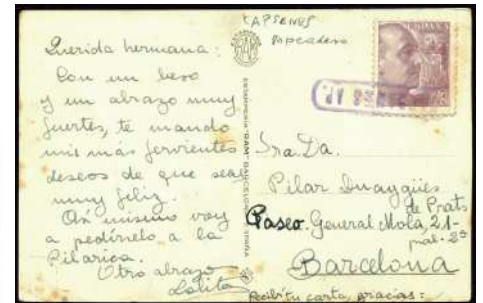 CAPSENUS
apeadero
Querida hermana:
Con un beso
y un abrazo muy
fuertes, te mando
mis más fervientes
deseos de que seas
muy feliz.
Así mismo voy
a pedírselo a la
Pilarica.
Otro abrazo
Lolita
ESTAMPERIA "RAM" BARCELONA ESPAÑA
Sra. Da.
Pilar
de Prats
Paseo. General Mola, 21-
pral. 2º
Barcelona
Recibí tu carta, gracias: